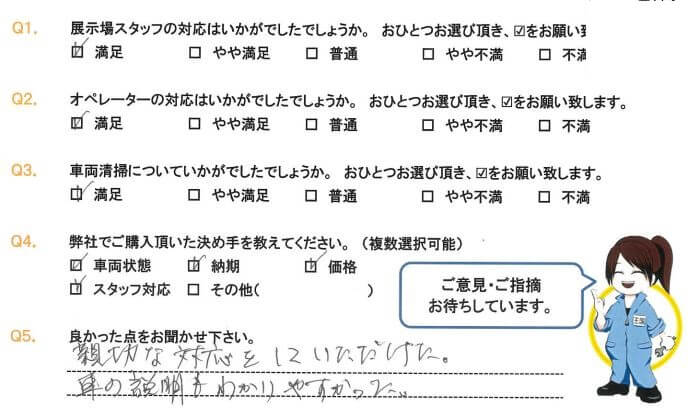 Q1. 展示場スタッフの対応はいかがでしたでしょうか。 おひとつお選び頂き、☑をお願い致
☑ 満足 □ やや満足 □ 普通 □ やや不満 □ 不満
Q2. オペレーターの対応はいかがでしたでしょうか。 おひとつお選び頂き、☑をお願い致します。
☑ 満足 □ やや満足 □ 普通 □ やや不満 □ 不満
Q3. 車両清掃についていかがでしたでしょうか。 おひとつお選び頂き、☑をお願い致します。
☑ 満足 □ やや満足 □ 普通 □ やや不満 □ 不満
Q4. 弊社でご購入頂いた決め手を教えてください。(複数選択可能)
☑ 車両状態 ☑ 納期 ☑ 価格
☑ スタッフ対応 □ その他( )
ご意見・ご指摘
お待ちしています。
Q5. 良かった点をお聞かせ下さい。
親切な対応をしていただけた。
車の説明もわかりやすかった。